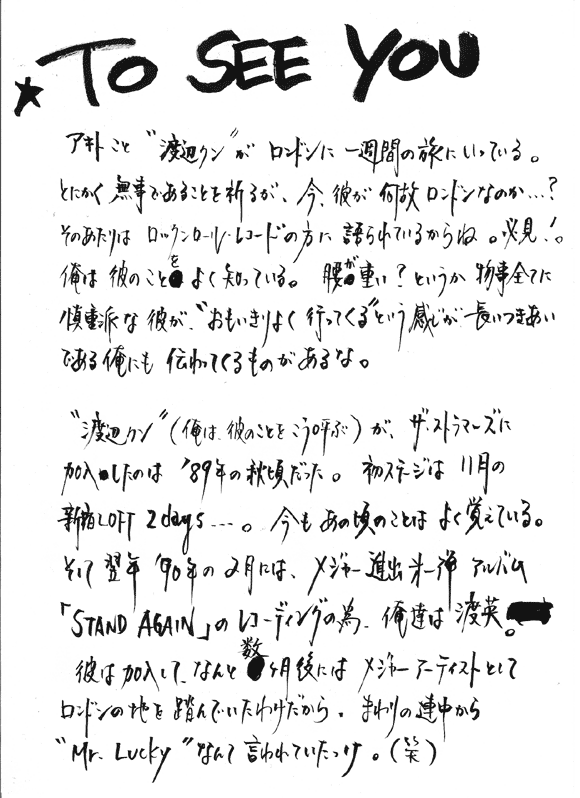 ★TO SEE YOU
アキトこと“渡辺クン”がロンドンに一週間の旅にいっている。
とにかく無事であることを祈るが、今、彼が何故ロンドンなのか…?
そのあたりはロックンロール・レコードの方に語られているからね。必見!。
俺は彼のことをよく知っている。腰が重い?というか物事全てに
慎重派な彼が、“おもいきりよく行ってくる”という感じが長いつきあい
である俺にも伝わってくるものがあるな。
“渡辺クン”(俺は、彼のことをこう呼ぶ)が、ザ・ストラマーズに
加入したのは'89年の秋頃だった。初ステージは11月の
新宿LOFT 2days…。今もあの頃のことはよく覚えている。
そして翌年'90年の2月には、メジャー進出第一弾アルバム
「STAND AGAIN」のレコーディングの為、俺達は渡英。
彼は加入して、なんと数ヶ月後にはメジャーアーティストとして
ロンドンの地を踏んでいたわけだから、まわりの連中から
“Mr. Lucky”なんて言われていたっけ。(笑)